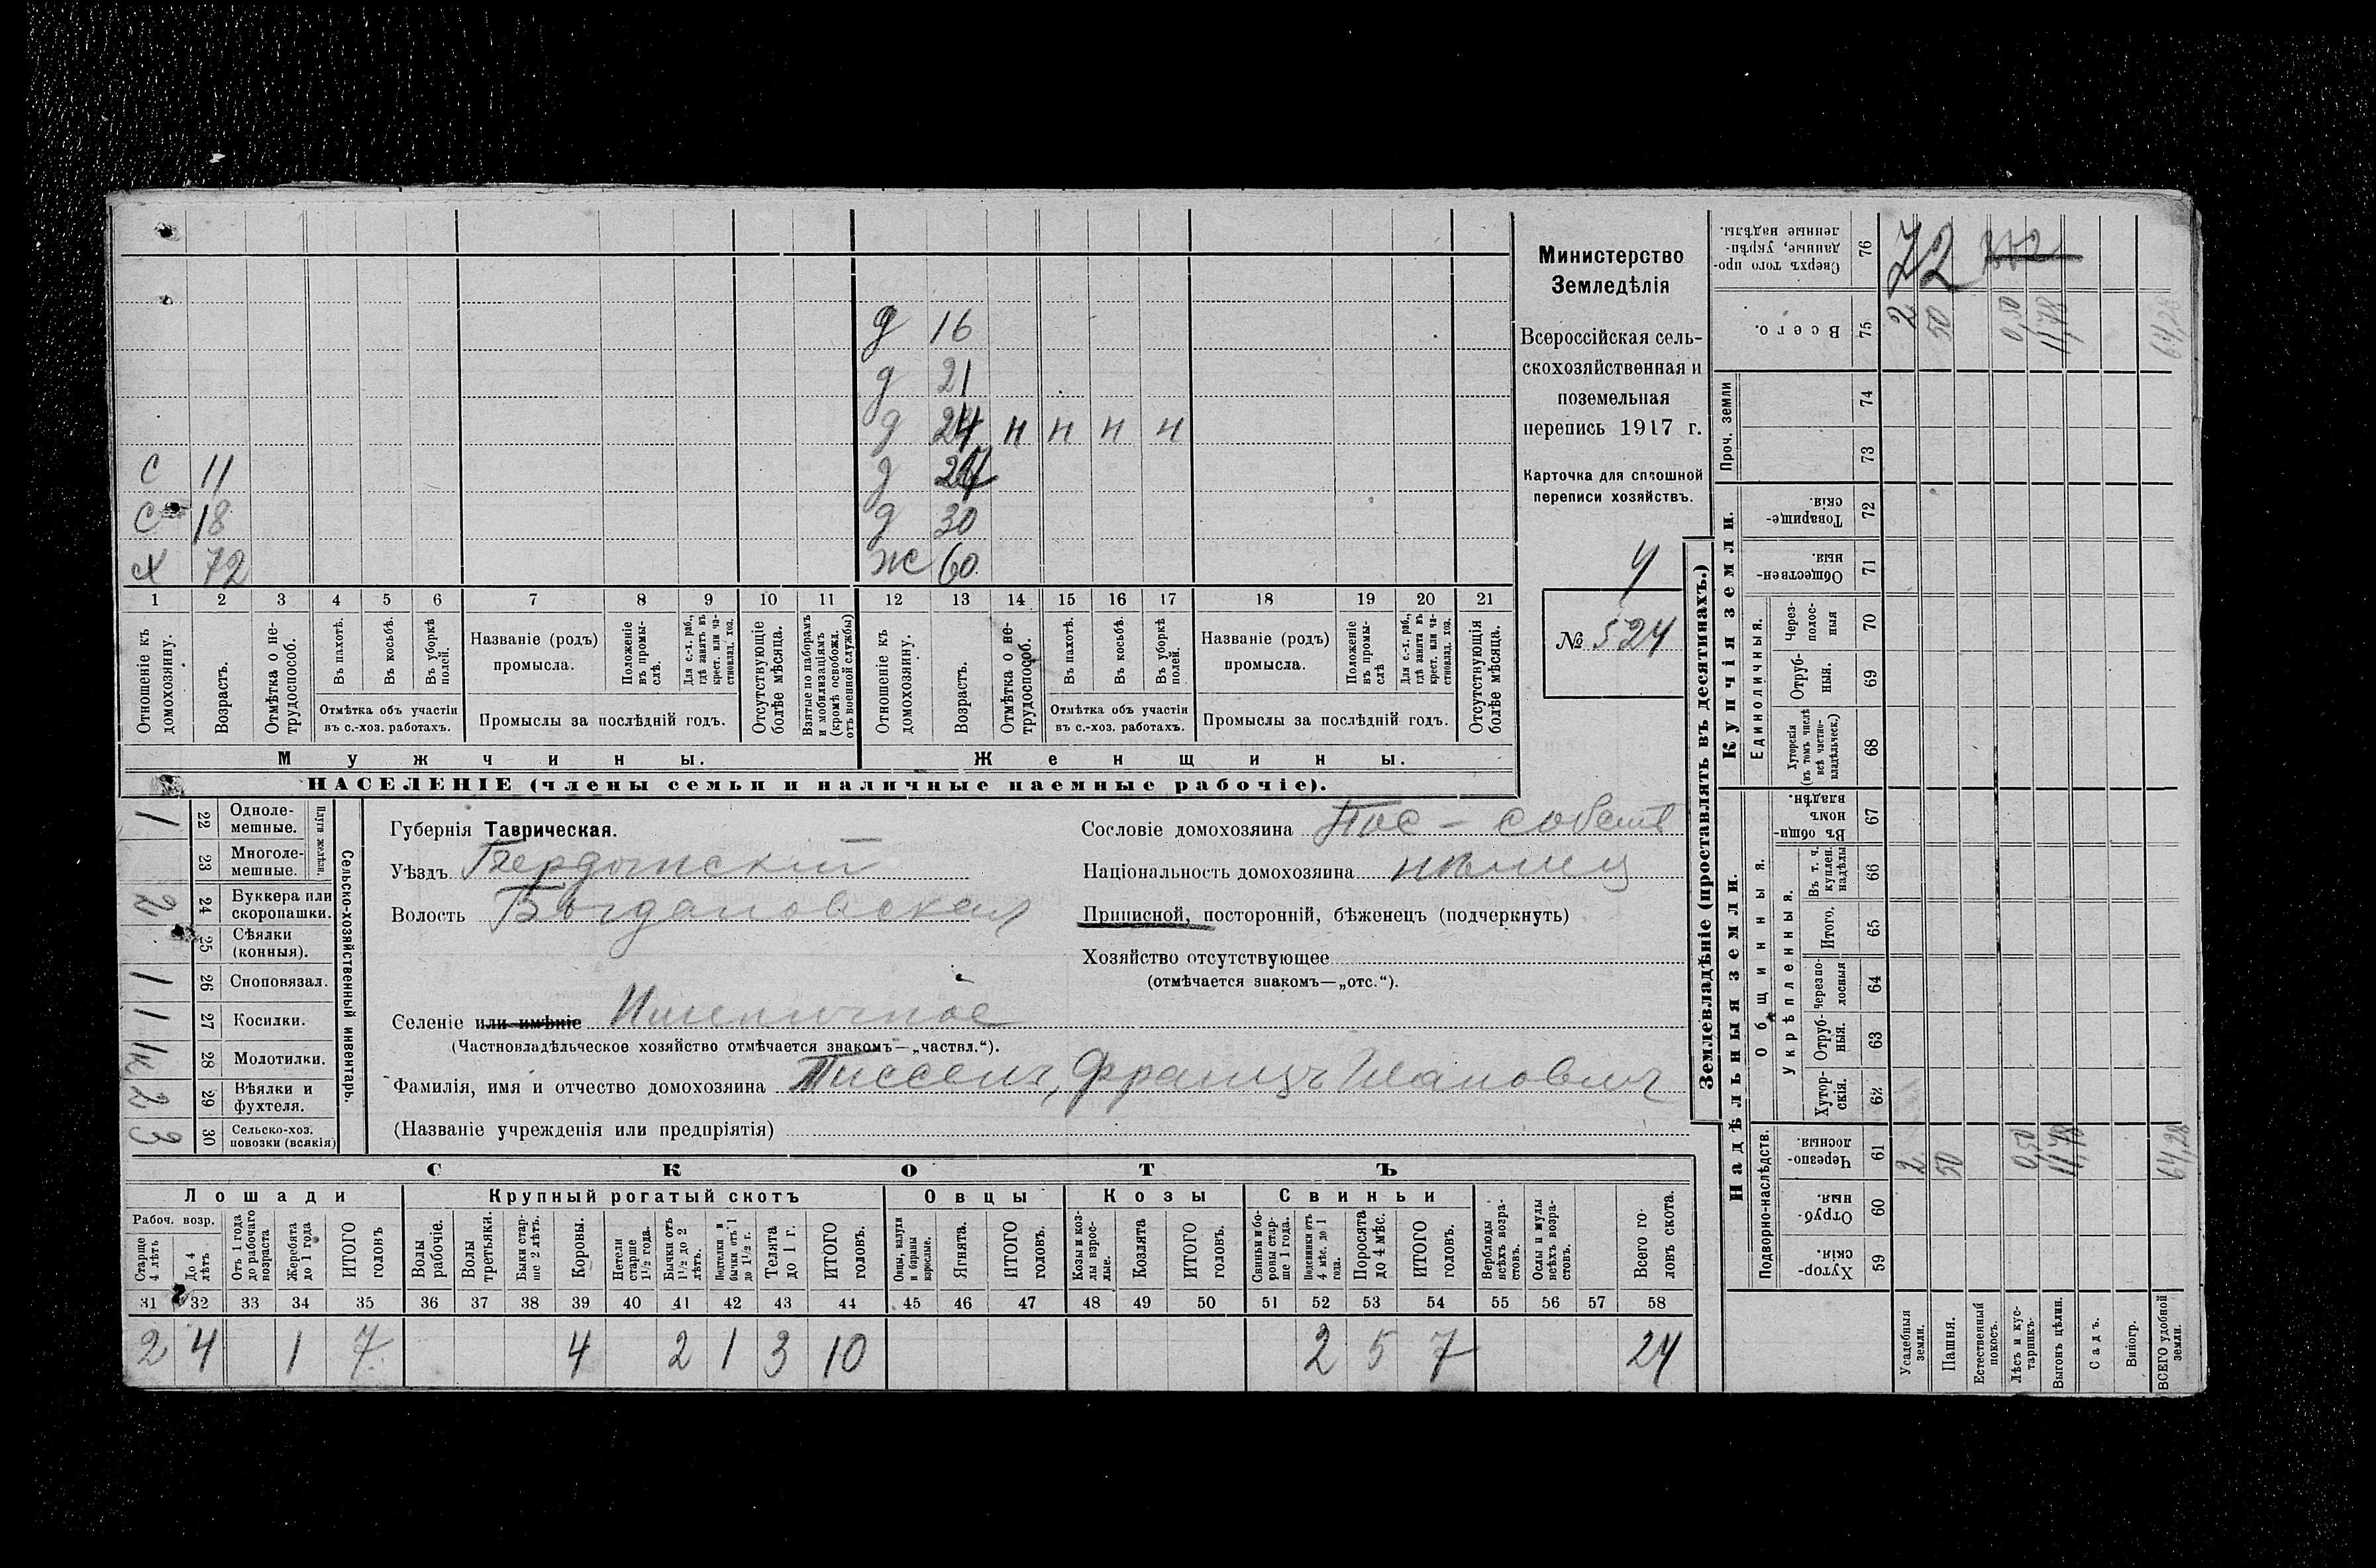 с 11
с 18
х 72
д 16
д 21
д 24 н н н н
д
д 30
ж 60
1 2 3 4 5 6 7 8 9 10 11 12 13 14 15 16 17 18 19 20 21
Отношеніе къ домохозяину.
Возрастъ.
Отмѣтка о нетрудоспособ.
Въ пахотѣ.
Въ косьбѣ.
Въ уборкѣ полей.
Отмѣтка объ участіи
въ с.-хоз. работахъ.
Названіе (родъ)
промысла.
Положеніе въ промыслѣ.
Для с.-х. раб., гдѣ занятъ въ крест. или частновлад. хоз.
Промыслы за послѣдній годъ.
Отсутствующіе болѣе мѣсяца.
Взятые по наборамъ и мобилизаціямъ (кромѣ освобожд. отъ военной службы)
Отношеніе къ домохозяину.
Возрастъ.
Отмѣтка о нетрудоспособ.
Въ пахотѣ.
Въ косьбѣ.
Въ уборкѣ полей.
Отмѣтка объ участіи
въ с.-хоз. работахъ.
Названіе (родъ)
промысла.
Положеніе въ промыслѣ
Для с.-х. раб., гдѣ занята въ крест. или частновлад. хоз.
Промыслы за послѣдній годъ.
Отсутствующія болѣе мѣсяца.
Мужчины.
Женщины.
НАСЕЛЕНІЕ (члены семьи и наличные наемные рабочіе).
Министерство
Земледѣлія
Всероссійская сель-
скохозяйственная и
поземельная
перепись 1917 г.
Карточка для сплошной
переписи хозяйствъ.
№ 524
1 22 Одноле-
мешные.
23 Многоле-
мешные.
Плуги желѣзн.
2 24 Буккера или
скоропашки.
25 Сѣялки
(конныя).
1 26 Сноповязал.
1 27 Косилки.
1к 28 Молотилки.
2 29 Вѣялки и
фухтеля.
3 30 Сельско-хоз.
повозки (всякія)
Сельско-хозяйственный инвентарь.
Губернія Таврическая.
Уѣздъ Бердянскій
Волость Богдановская
Селеніе или имѣніе Пшеничное
(Частновладѣльческое хозяйство отмѣчается знакомъ—„частвл.“).
Фамилія, имя и отчество домохозяина Тиссенъ, Францъ Исаковичъ
(Названіе учрежденія или предпріятія)
Сословіе домохозяина Пос - собств
Національность домохозяина нѣмец
Приписной, посторонній, бѣженецъ (подчеркнуть)
Хозяйство отсутствующее
(отмѣчается знакомъ—„отс.“).
СКОТЪ
Лошади
Крупный рогатый скотъ
Овцы
Козы
Свиньи
Рабоч. возр.
Старше 4 лѣтъ
До 4 лѣтъ
Отъ 1 года до рабочаго возраста
Жеребята до 1 года
ИТОГО головъ
Волы рабочіе.
Волы третьяки.
Быки старше 2 лѣтъ.
Коровы.
Нетели старше 1½ года.
Бычки отъ 1½ до 2 лѣтъ.
Подтелки и бычки отъ 1 до 1½ г.
Телята до 1 г.
ИТОГО головъ.
Овцы, валухи и бараны взрослые.
Ягнята.
ИТОГО головъ.
Козы и козлы взрослые.
Козлята
ИТОГО головъ.
Свиньи и боровы старше 1 года.
Подсвинки отъ 4 мѣс. до 1 года.
Поросята до 4 мѣс.
ИТОГО головъ.
Верблюды всѣхъ возрастовъ.
Ослы и мулы всѣхъ возрастовъ.
Всего головъ скота.
31 32 33 34 35 36 37 38 39 40 41 42 43 44 45 46 47 48 49 50 51 52 53 54 55 56 57 58
2 4 1 7 4 2 1 3 10 2 5 7 24
Землевладѣніе (проставлять въ десятинахъ.)
Надѣльныя земли.
Купчія земли.
Проч. земли
Подворно-наслѣдств.
Общинныя.
Укрѣпленныя.
Единоличныя.
Сверхъ того проданные, укрѣпленные надѣлы. 76
Всего. 75
74
73
Товарищескія. 72
Общественныя. 71
Через-полосныя 70
Отрубныя. 69
Хуторскія (въ томъ числѣ всѣ частновладѣльческ.) 68
Въ общинномъ владѣн. 67
Въ т. ч. куплен. надѣлы 66
Итого. 65
Черезполосныя 64
Отрубныя. 63
Хуторскія. 62
Черезполосныя. 61
Отрубныя. 60
Хуторскія. 59
72
2 50 0,50 11,78 64,28
2 50 0,50 11,78 64,28
Усадебныя земли.
Пашня.
Естественный покосъ.
Лѣсъ и кустарникъ.
Выгонъ цѣлин.
Садъ.
Виногр.
ВСЕГО удобной земли.